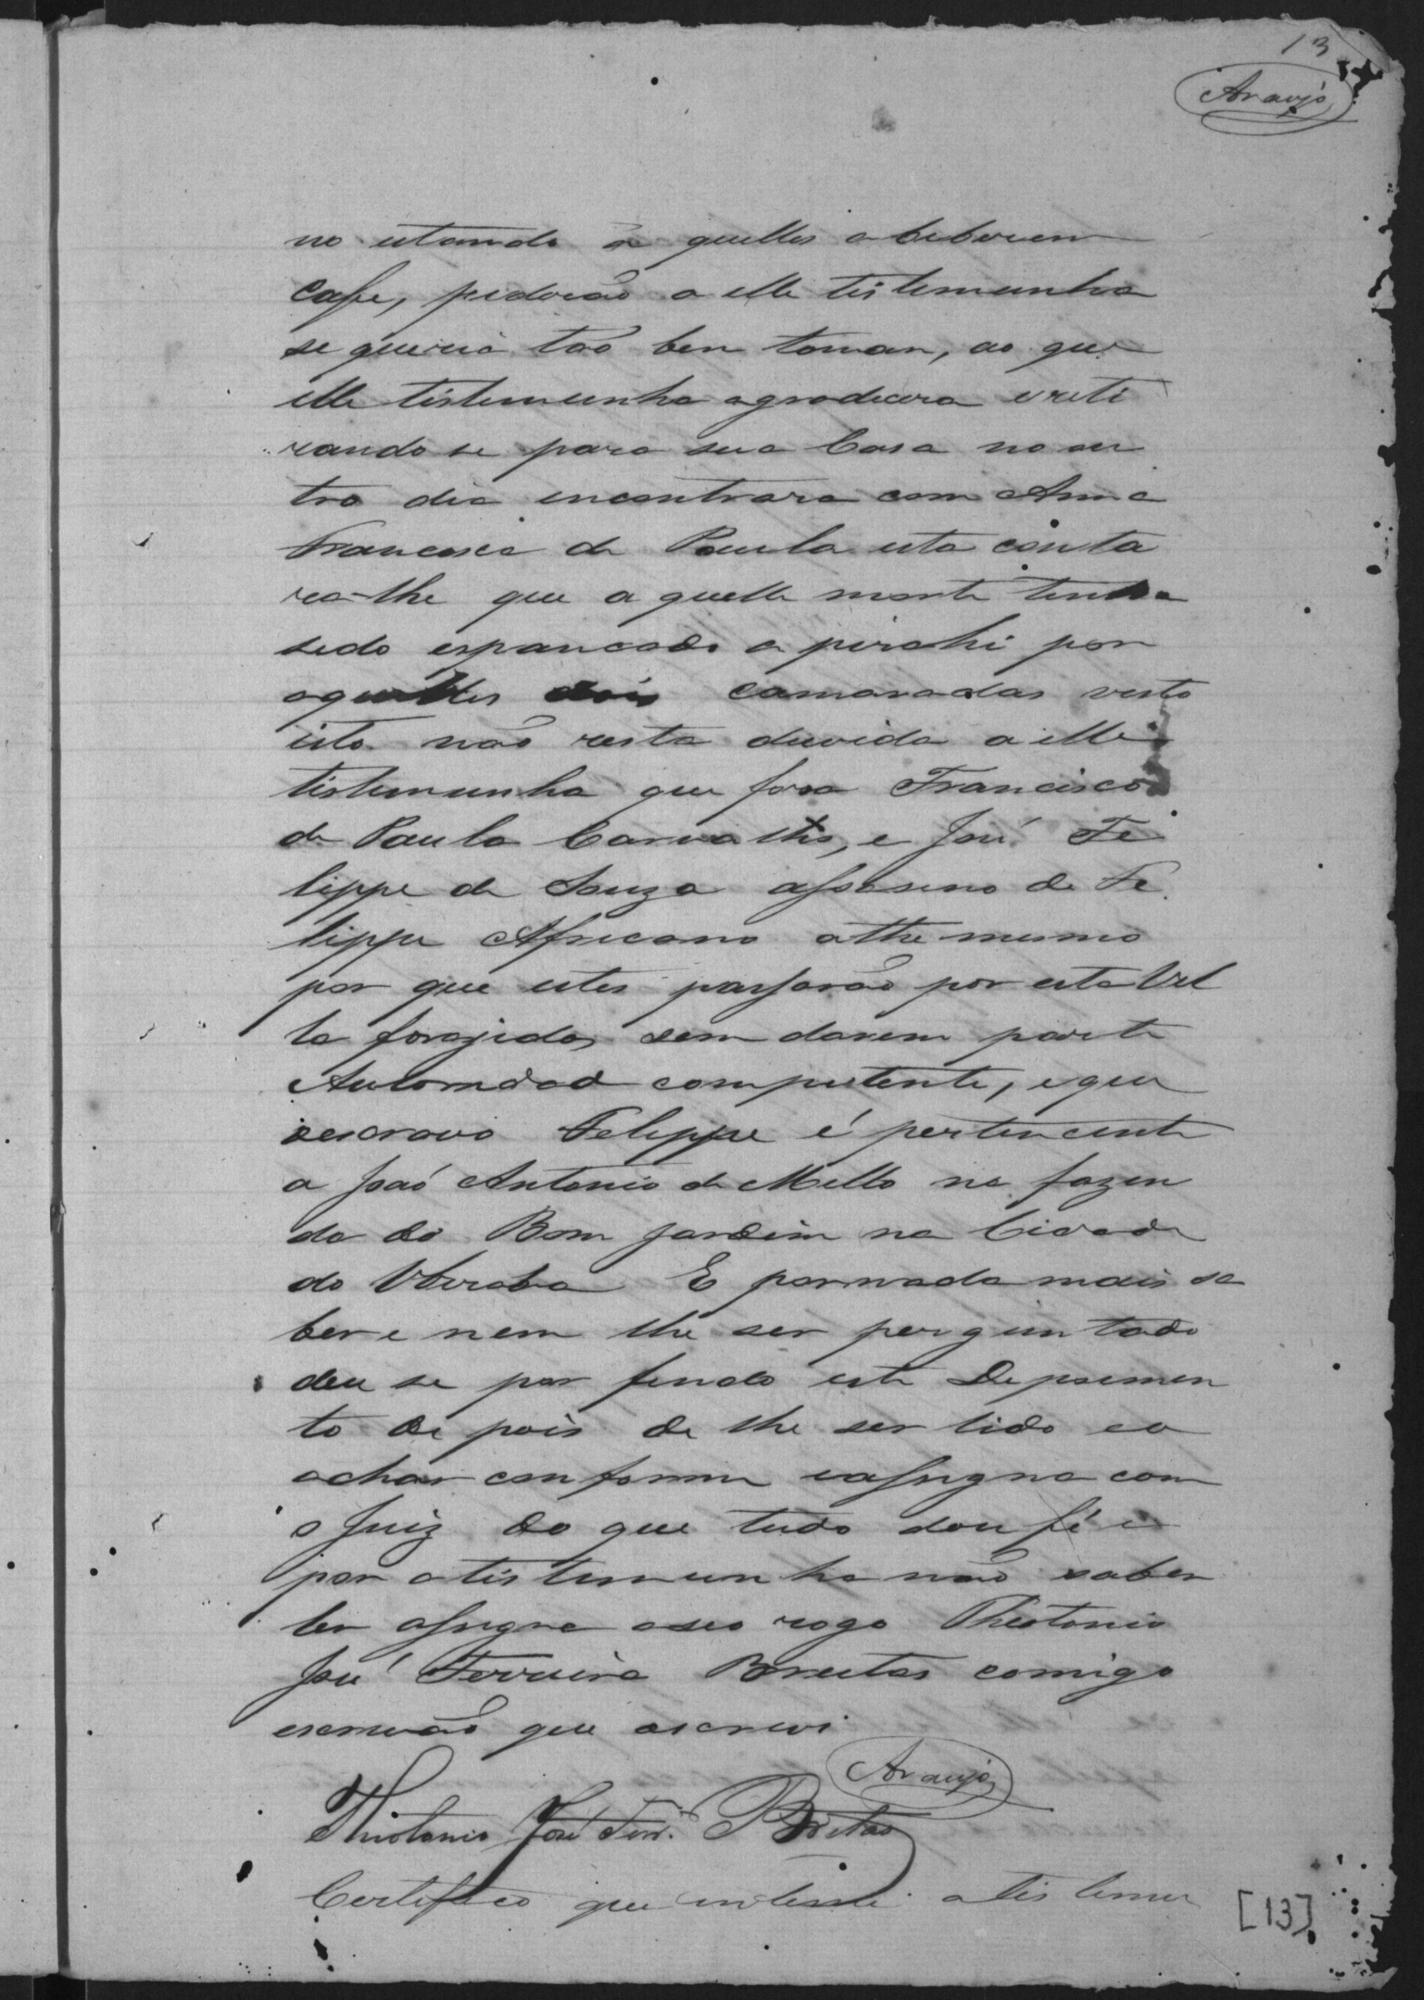 13
Araujo
no estando a quelles a beberem
cafe, pedirão a elle testemunha
se queria tão bem tomar, ao que
elle testemunha agradecera e reti
rando se para sua Casa no ou
tro dia encontrara com Anna
Francisca de Paula esta conta
ra-lhe que a quelle morto tinha
sedo espancado a por
aquelles dois camaradas visto
isto não resta duvida a elle
testemunha que fora Francisco
de Paula Carvalho, e José Fe
lippe de Souza assasino de Fe
lippe Africano athe mesmo
por que estes passarão por esta Vil
la forajidos sem darem parte
Autoridad competente, e que
o escravo Felippe é pertencente
a João Antonio de Mello na fazen
da do Bom Jardim na Cidade
do Uberaba E por nada mais sa
ber e nem lhe ser perguntado
deu se por findo este Depoimen
to de pois de lhe ser lido e o
achar conforme e assigna com
o Juiz do que tudo dou fé e
por a testemunha não saber
ler assigna a seo rogo Theotonio
José Ferreira Bretas comigo
escrivão que escrevi
Araujo
Thiotonio José Ferr. Bretas
Certifico que intimei a testemu
[13]